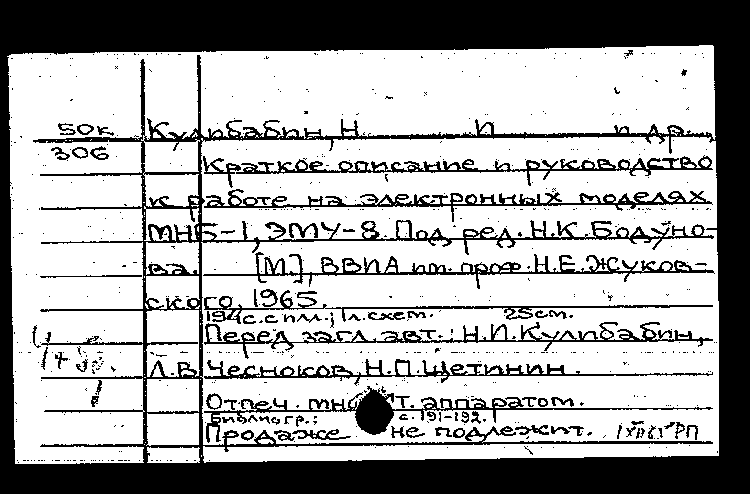 50к Кулибабин, Н И и др.,
306
Краткое описание и руководство
к работе на электронных моделях
МНБ-1, ЭМУ-8. Под ред. Н.К. Бодуно-
ва. [М.], ВВИА им. проф. Н.Е. Жуков-
ского, 1965.
194с. с илл.; 1 л. схем. 25см.
Перед загл. авт.: Н.И. Кулибабин,
Л.В. Чесноков, Н.П. Щетинин.
Отпеч. мно т. аппаратом.
Библиогр.: с. 191-192.
Продаже не подлежит.